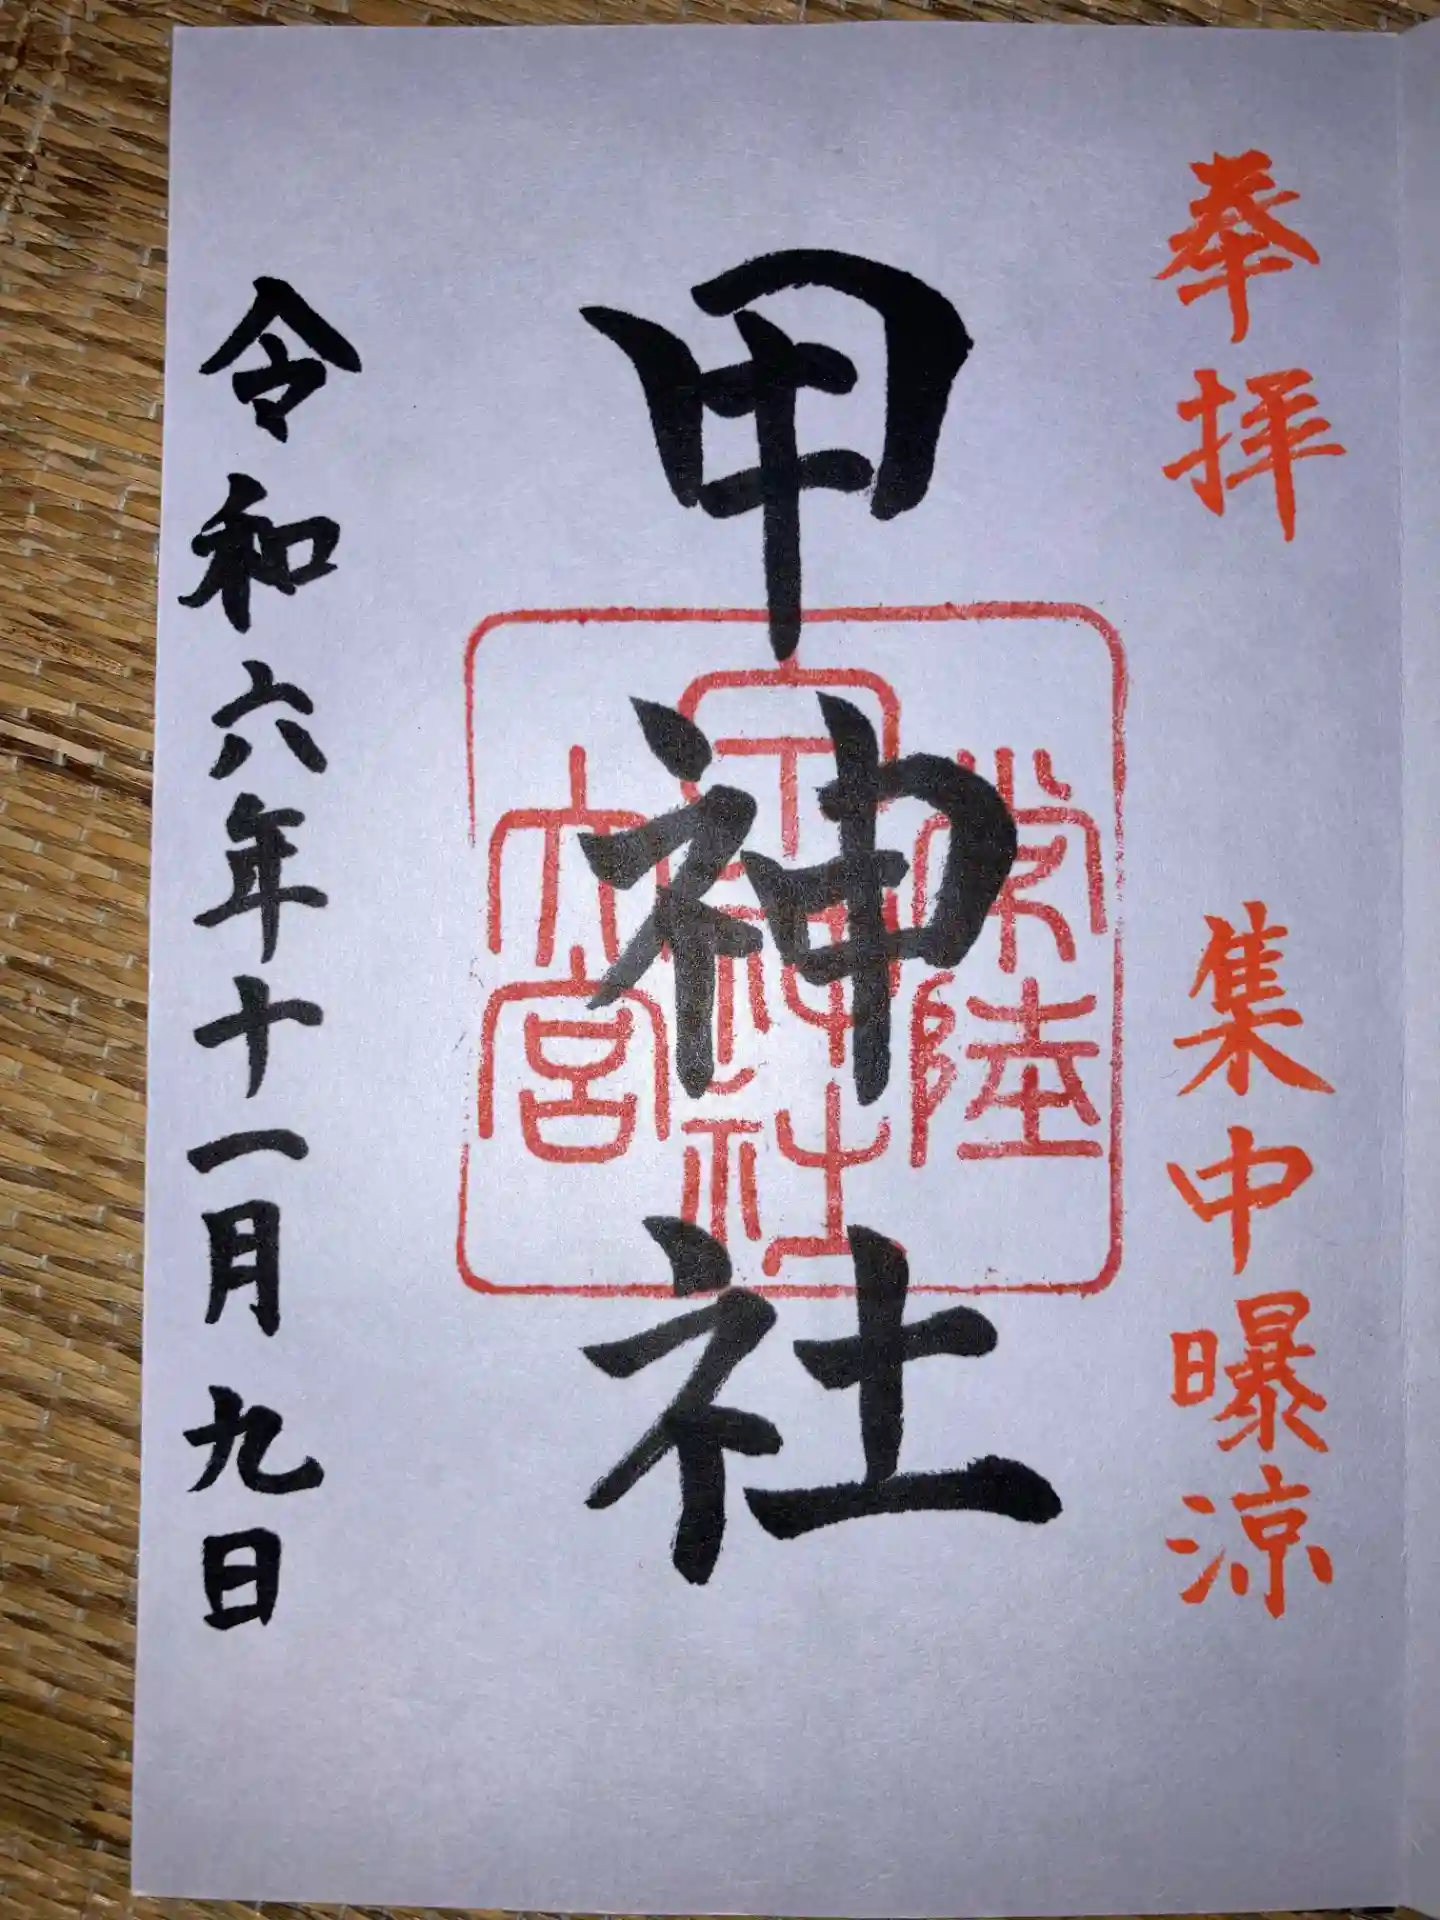 奉拝　集中曝涼
甲神社
常陸
甲神社
大宮
令和六年十一月九日